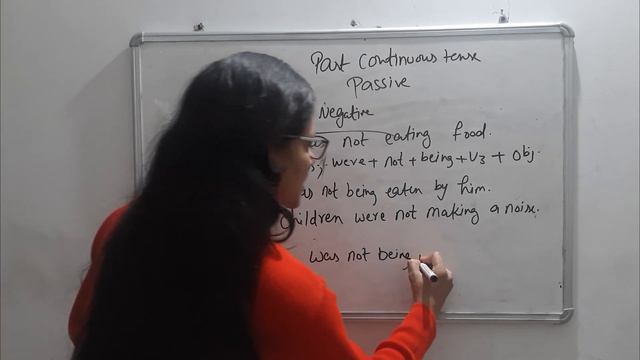 Past Continuous tense
Passive
Negative
not eating food.
were + not + being + V3 + Obj.
not being eaten by him.
Children were not making a noise.
was not being